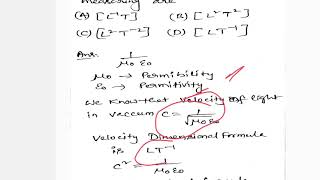 measuring are
(A) [L¹T] (B) [L²T²]
(C) [L²T⁻²] (D) [LT⁻¹]
Ans: 1/μ₀ε₀
μ₀ → Permibility
ε₀ → Permitivity
We know that velocity of light
in vaccum C = 1/√μ₀ε₀
Velocity Dimensional Formula
is LT⁻¹
C² = 1/μ₀ε₀